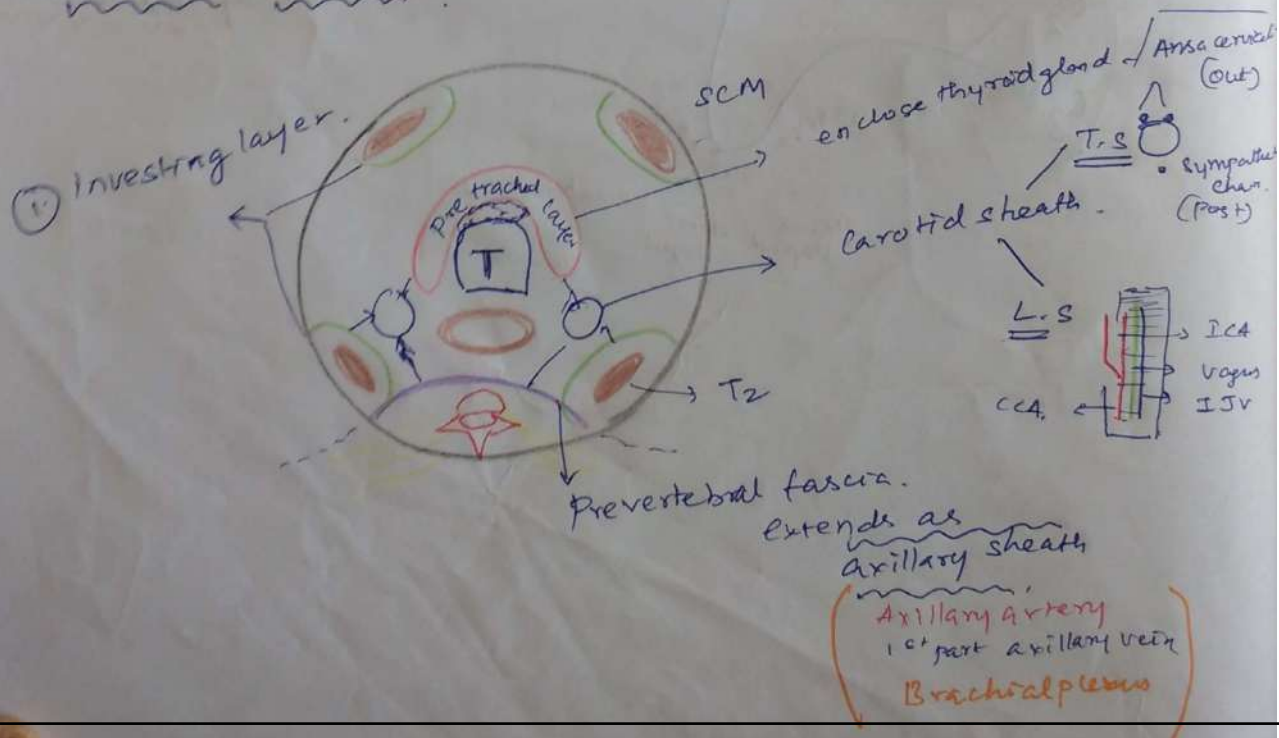 ① Investing layer.
SCM
enclose thyroid gland
Ansa cervical
(out)
T.S
Sympathet
chan.
(Post)
Pre tracheal layer
T
Carotid sheath.
L.S
ICA
vagus
IJV
CCA.
T2
Prevertebral fascia.
extends as
axillary sheath
Axillary artery
1st part axillary vein
Brachial plexus